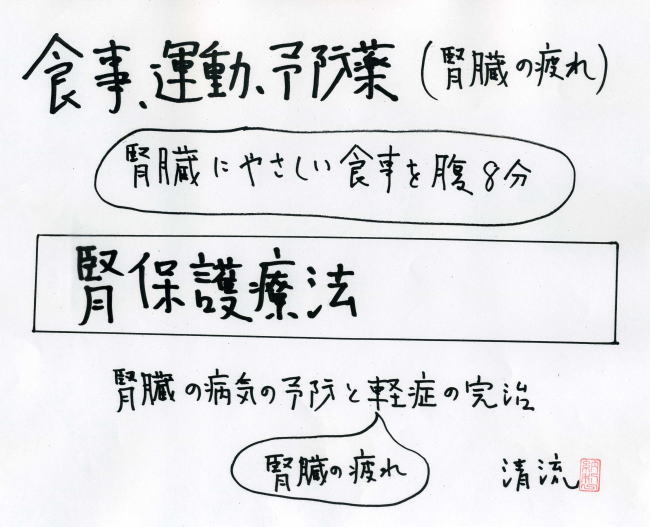 食事、運動、予防薬（腎臓の疲れ）
腎臓にやさしい食事を腹8分
腎保護療法
腎臓の病気の予防と軽症の完治
腎臓の疲れ
清流